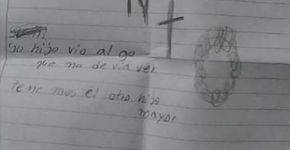 Su hijo vio algo
que no devia ver
tenemos el otro hijo
mayor